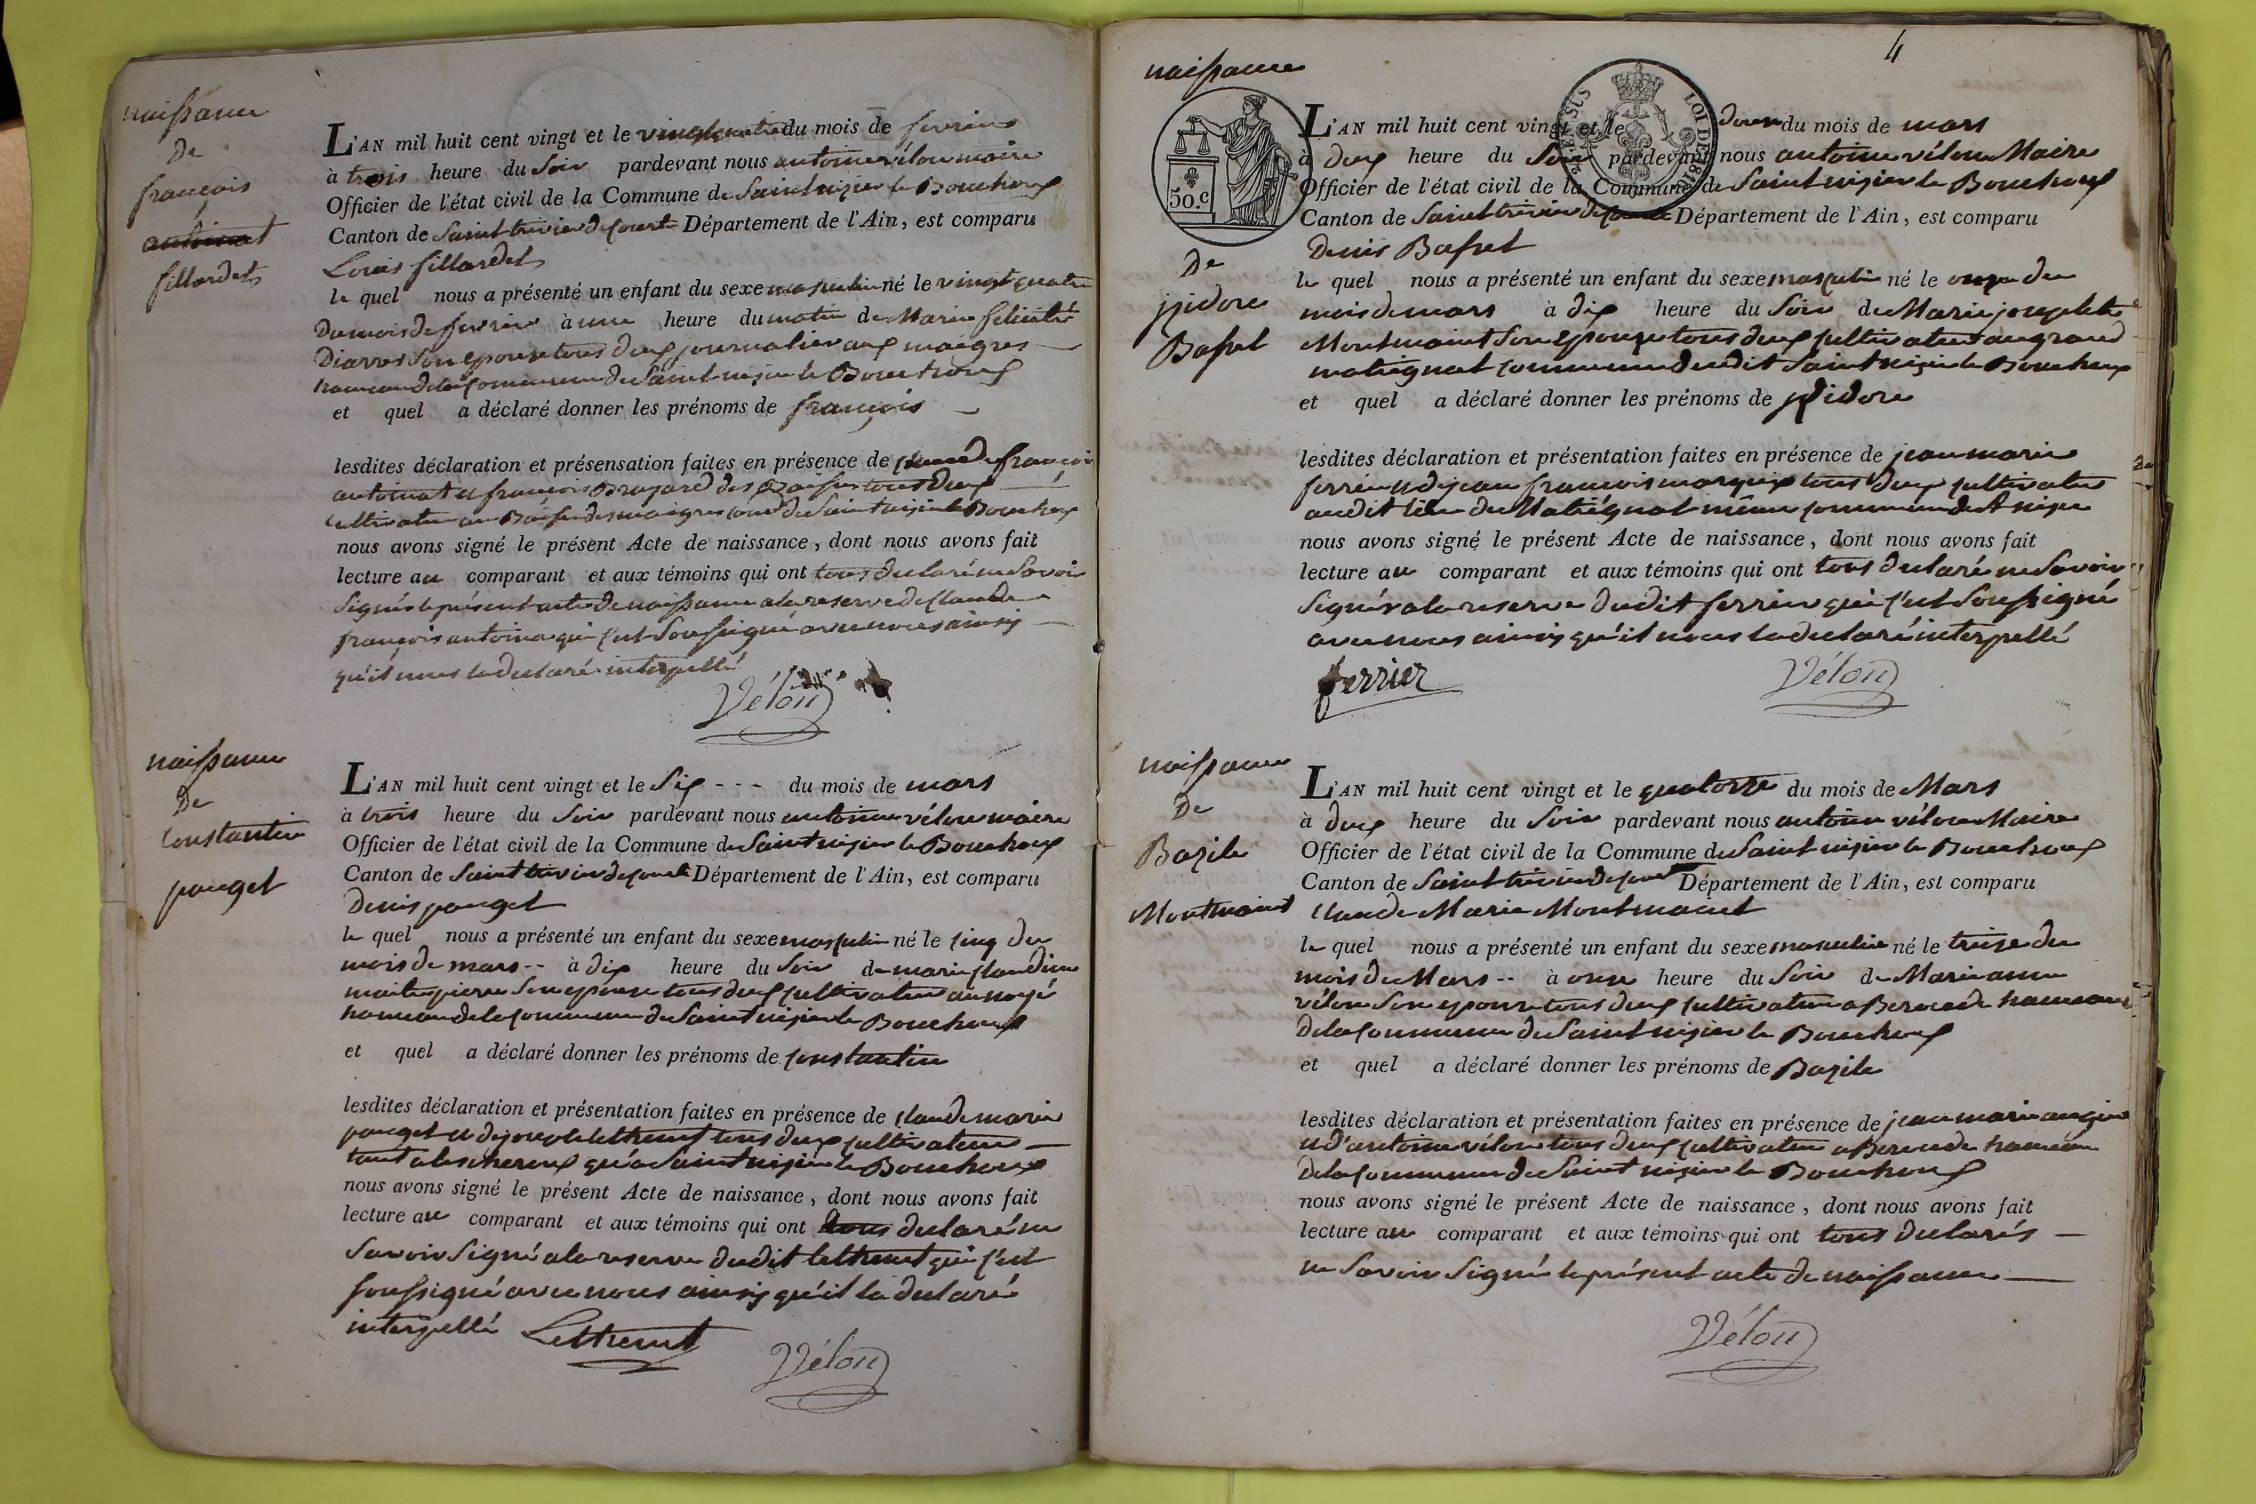 naissance
de
françois
antoinat
fillardet
L'AN mil huit cent vingt et le vingt quatre du mois de fevrier
à trois heure du Soir pardevant nous antoine vélon maire
Officier de l'état civil de la Commune de Saint nizier le Bouchoux
Canton de Saint trivier de Court Département de l'Ain, est comparu
Louis fillardet
le quel nous a présenté un enfant du sexe masculin né le vingt quatre
du mois de fevrier à une heure du matin de Marie felicité
Diarres Son epouse tous deux journalier aux maigres
hameau de la Commune de Saint nizier le Bouchoux
et quel a déclaré donner les prénoms de françois
lesdites déclaration et présensation faites en présence de Claude françois
antoinat et françois Brazard des tous deux
Cultivateur au des maigres de Saint nizier le Bouchoux
nous avons signé le présent Acte de naissance, dont nous avons fait
lecture au comparant et aux témoins qui ont tous declaré ne Savoir
Signés le présent acte de naissance a la reserve de Claude
françois antoina qui S'est Soussigné avec nous ainsy
qu'il nous la declaré interpellé
Vélon
naissance
De
Constantin
pauget
L'AN mil huit cent vingt et le Six - - - du mois de mars
à trois heure du Soir pardevant nous antoine vélon maire
Officier de l'état civil de la Commune de Saint nizier le Bouchoux
Canton de Saint trivier de Court Département de l'Ain, est comparu
Denis pauget
le quel nous a présenté un enfant du sexe masculin né le Cinq du
mois de mars -- à dix heure du Soir de marie Claudine
maitrepierre Son epouse tous deux Cultivateur au noyé
hameau de la Commune de Saint nizier le Bouchoux
et quel a déclaré donner les prénoms de Constantin
lesdites déclaration et présentation faites en présence de Claude marie
pauget et de joseph lethenet tous deux Cultivateur
tout a qu'a Saint nizier le Bouchoux
nous avons signé le présent Acte de naissance, dont nous avons fait
lecture au comparant et aux témoins qui ont tous declaré ne
Savoir Signé a la reserve dudit qui S'est
Soussigné avec nous ainsy qu'il la declaré
interpellé
Vélon
4
naissance
50.c
LOI DE 1816
De
jzidore
Bafret
L'AN mil huit cent vingt et le douze du mois de mars
à deux heure du Soir pardevant nous antoine vélon Maire
Officier de l'état civil de la Commune de Saint nizier le Bouchoux
Canton de Saint trivier de Court Département de l'Ain, est comparu
Denis Bafret
le quel nous a présenté un enfant du sexe masculin né le onze du
mois de mars à dix heure du Soir de Marie josephte
Montmaint Son Epouse tous deux Cultivateur au grand
matignat Commune dudit Saint nizier le Bouchoux
et quel a déclaré donner les prénoms de jzidore
lesdites déclaration et présentation faites en présence de jean marie
ferrier et de jean françois marguin tous deux Cultivateur
audit lieu de Matignat même Commune de St nizier
nous avons signé le présent Acte de naissance, dont nous avons fait
lecture au comparant et aux témoins qui ont tous declaré ne Savoir
Signér a la reserve dudit ferrier qui S'est Soussigné
avec nous ainsy qu'il nous la declaré interpellé
ferrier
Vélon
naissance
De
Bazile
Montmaint
L'AN mil huit cent vingt et le quatorze du mois de Mars
à deux heure du Soir pardevant nous antoine vélon Maire
Officier de l'état civil de la Commune de Saint nizier le Bouchoux
Canton de Saint trivier de Court Département de l'Ain, est comparu
Claude Marie Montmaint
le quel nous a présenté un enfant du sexe masculin né le treize du
mois de Mars -- à onze heure du Soir de Marie anne
vélon Son epouse tous deux Cultivateur a Berende hameau
de la Commune de Saint nizier le Bouchoux
et quel a déclaré donner les prénoms de Bazile
lesdites déclaration et présentation faites en présence de jean marie
et d'antoine vélon tous deux Cultivateur a Berende hameau
de la Commune de Saint nizier le Bouchoux
nous avons signé le présent Acte de naissance, dont nous avons fait
lecture au comparant et aux témoins qui ont tous declarés
ne Savoir Signé le présent acte de naissance
Vélon